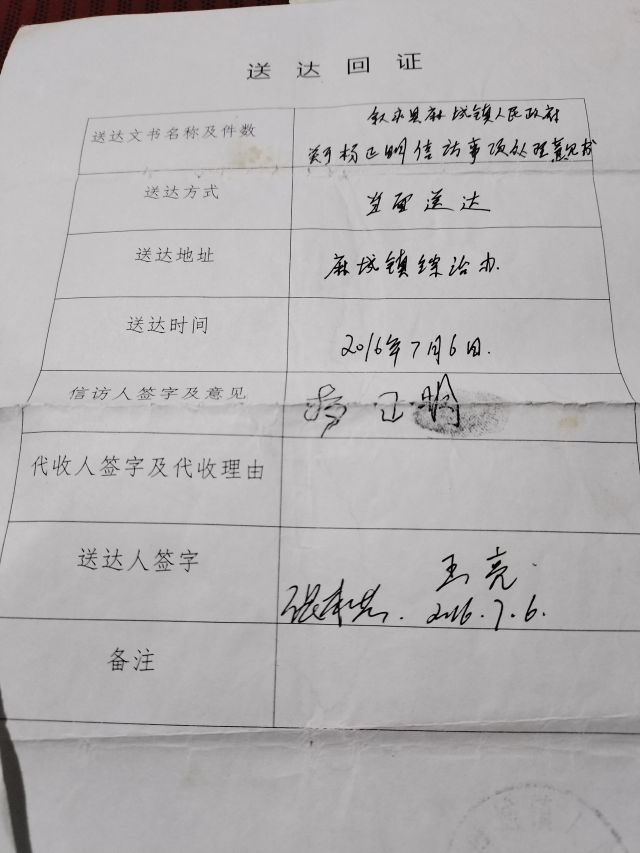 送达回证
送达文书名称及件数
叙永县麻城镇人民政府
关于杨正明信访事项处理意见书
送达方式
当面送达
送达地址
麻城镇综治办.
送达时间
2016年7月6日.
信访人签字及意见
杨正明
代收人签字及代收理由
送达人签字
王亮.
2016.7.6.
备注